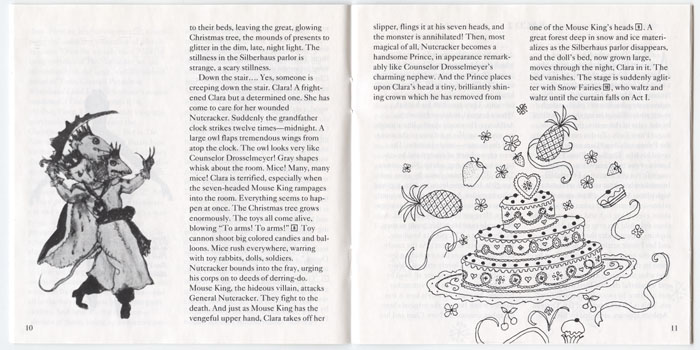 to their beds, leaving the great, glowing
Christmas tree, the mounds of presents to
glitter in the dim, late, night light. The
stillness in the Silberhaus parlor is
strange, a scary stillness.
Down the stair.... Yes, someone is
creeping down the stair. Clara! A fright-
ened Clara but a determined one. She has
come to care for her wounded
Nutcracker. Suddenly the grandfather
clock strikes twelve times—midnight. A
large owl flaps tremendous wings from
atop the clock. The owl looks very like
Counselor Drosselmeyer! Gray shapes
whisk about the room. Mice! Many, many
mice! Clara is terrified, especially when
the seven-headed Mouse King rampages
into the room. Everything seems to hap-
pen at once. The Christmas tree grows
enormously. The toys all come alive,
blowing "To arms! To arms!" Toy
cannon shoot big colored candies and bal-
loons. Mice rush everywhere, warring
with toy rabbits, dolls, soldiers.
Nutcracker bounds into the fray, urging
his corps on to deeds of derring-do.
Mouse King, the hideous villain, attacks
General Nutcracker. They fight to the
death. And just as Mouse King has the
vengeful upper hand, Clara takes off her
10
slipper, flings it at his seven heads, and
the monster is annihilated! Then, most
magical of all, Nutcracker becomes a
handsome Prince, in appearance remark-
ably like Counselor Drosselmeyer's
charming nephew. And the Prince places
upon Clara's head a tiny, brilliantly shin-
ing crown which he has removed from
one of the Mouse King's heads. A
great forest deep in snow and ice materi-
alizes as the Silberhaus parlor disappears,
and the doll's bed, now grown large,
moves through the night, Clara in it. The
bed vanishes. The stage is suddenly aglit-
ter with Snow Fairies, who waltz and
waltz until the curtain falls on Act I.
11